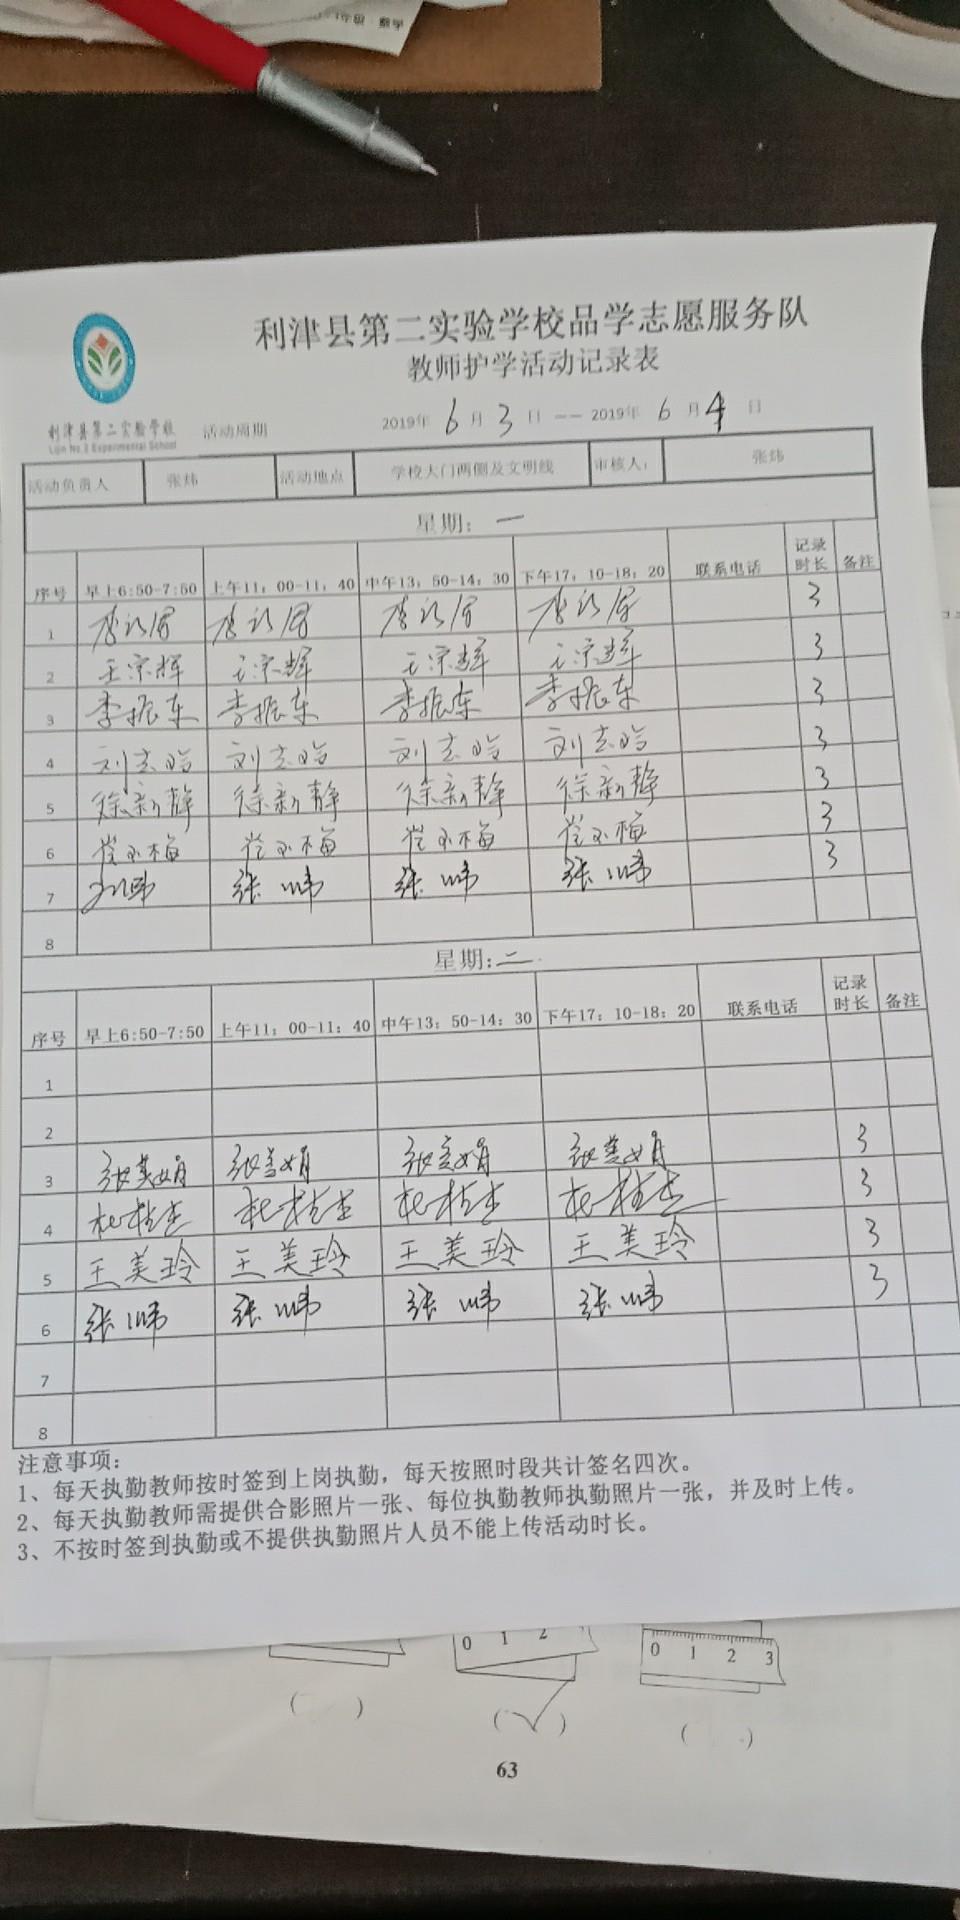 利津县第二实验学校品学志愿服务队
教师护学活动记录表
利津县第二实验学校
Lijin No.2 Experimental School
活动周期 2019年 6 月 3 日 -- 2019年 6 月 4 日
活动负责人 张炜 活动地点 学校大门两侧及文明线 审核人: 张炜
星期: 一
序号 早上6:50-7:50 上午11: 00-11: 40 中午13: 50-14: 30 下午17: 10-18: 20 联系电话 记录时长 备注
1 3
2 王宗辉 王宗辉 王宗辉 王宗辉 3
3 李振东 李振东 李振东 李振东 3
4 刘志晗 刘志晗 刘志晗 刘志晗 3
5 徐新静 徐新静 徐新静 徐新静 3
6 3
7 张炜 张炜 张炜 3
8
星期: 二
序号 早上6:50-7:50 上午11: 00-11: 40 中午13: 50-14: 30 下午17: 10-18: 20 联系电话 记录时长 备注
1
2
3 张美娟 张美娟 张美娟 张美娟 3
4 杜桂杰 杜桂杰 杜桂杰 杜桂杰 3
5 王美玲 王美玲 王美玲 王美玲 3
6 张炜 张炜 张炜 张炜 3
7
8
注意事项:
1、每天执勤教师按时签到上岗执勤，每天按照时段共计签名四次。
2、每天执勤教师需提供合影照片一张、每位执勤教师执勤照片一张，并及时上传。
3、不按时签到执勤或不提供执勤照片人员不能上传活动时长。
0 1 2
0 1 2 3
( ) (✓) ( )
63